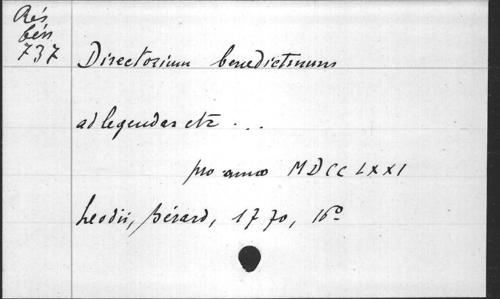 Rés
bén
737
Directorium benedictinum
ad legendas etc ...
pro anno MDCCLXXI
Leodii, Bérard, 1770, 16°